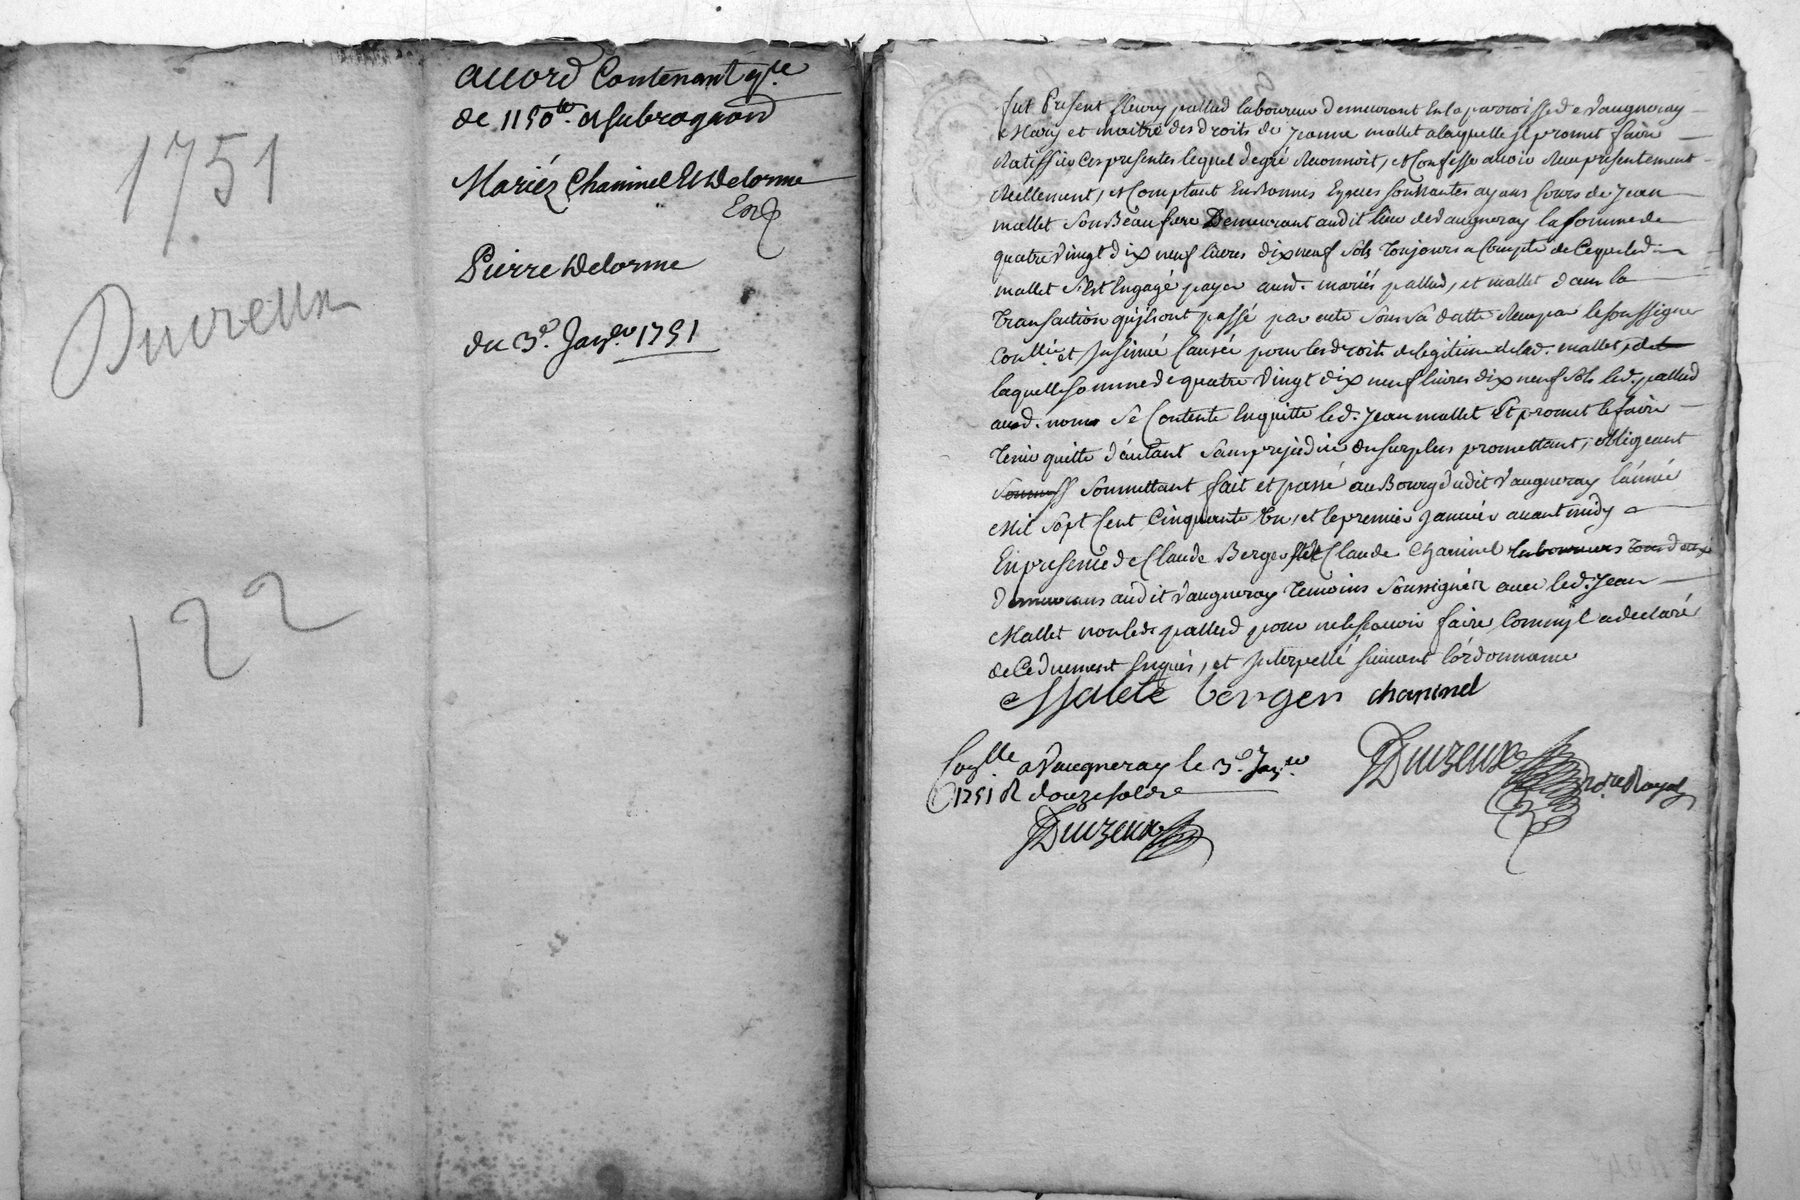 1751
Ducreux
122
accord Contenant q.ce
de 1150.tt et subrogaon
Mariéz Chaninel Et Delorme
Et
Pierre Delorme
du 3.e Janv.er 1751
fut Present fleury pallud laboureur demeurant en la parroisse de Vaugneray
Mary et maitre des droits de Jeanne mallet a laquelle Jl promet faire
Ratiffier Ces presentes lequel de gré Reconnoit, et Confesse avoir Reçu presentement
Réellement, et Comptant En Bonnes Espèces sonnantes ayans Cours de Jean
mallet son Beaufrere Demeurant audit lieu de Vaugneray la somme de
quatre Vingt dix neuf livres dix neuf sols Toujours a Compte de Ce que led.
mallet s'Est Engagé payer aud. mariés pallud, et mallet dans la
Transaction qu'jls ont passé par acte sous sa datte Reçu par le soussigné
Con.llé et Jnsinué Causée pour les droits de legitime de lad. mallet, de
laquelle somme de quatre Vingt dix neuf livres dix neuf sols led. pallud
aud. nom Se Contente En quitte led. Jean mallet Et promet le faire
Tenir quitte d'autant sans prejudice du surplus promettant, obligeant
Soumett Soumettant fait et passé au Bourg dudit Vaugneray l'année
Mil sept Cent Cinquante Un, et le premier Janvier avant midy
En presence de Claude Berger et Claude Chaninel laboureurs Tous deux
demeurans audit Vaugneray Temoins Soussignéz avec led. Jean
Mallet non led. pallud pour ne le sçavoir faire Comm'jl a declaré
de Ce duement Enquis, et Jnterpellé suivant l'ordonnance
Malete berger chaninel
Con.lle a Vaugneray le 3.e Jan.er
1751 R douze sols
Ducreux no.re Royal
Ducreux